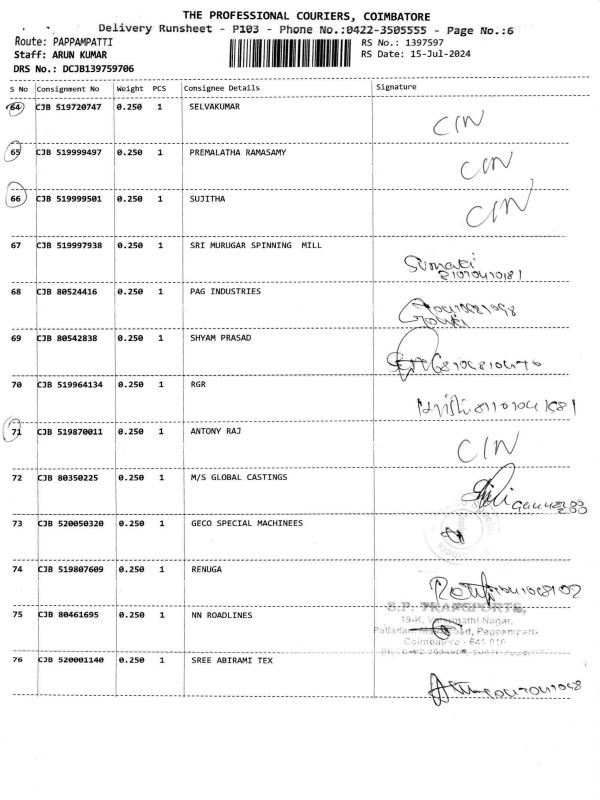 THE PROFESSIONAL COURIERS, COIMBATORE
Delivery Runsheet - P103 - Phone No.:0422-3505555 - Page No.:6
Route: PAPPAMPATTI
RS No.: 1397597
Staff: ARUN KUMAR
RS Date: 15-Jul-2024
DRS No.: DCJB139759706
S No Consignment No Weight PCS Consignee Details Signature
64 CJB 519720747 0.250 1 SELVAKUMAR CIN
65 CJB 519999497 0.250 1 PREMALATHA RAMASAMY CIN
66 CJB 519999501 0.250 1 SUJITHA CIN
67 CJB 519997938 0.250 1 SRI MURUGAR SPINNING MILL
Sumaki
68 CJB 80524416 0.250 1 PAG INDUSTRIES
69 CJB 80542838 0.250 1 SHYAM PRASAD
70 CJB 519964134 0.250 1 RGR
71 CJB 519870011 0.250 1 ANTONY RAJ CIN
72 CJB 80350225 0.250 1 M/S GLOBAL CASTINGS
73 CJB 520050320 0.250 1 GECO SPECIAL MACHINEES
74 CJB 519807609 0.250 1 RENUGA
S.P. TRANSPORTS,
75 CJB 80461695 0.250 1 NN ROADLINES
19-K, Nagar,
Coimbatore - 641 016
76 CJB 520001140 0.250 1 SREE ABIRAMI TEX